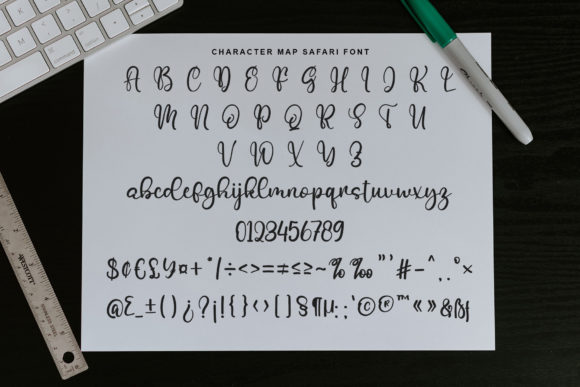 CHARACTER MAP SAFARI FONT
A B C D E F G H I J K L
M N O P Q R S T U
V W X Y Z
abcdefghijklmnopqrstuvwxyz
0123456789
$¢€£¥¤+*/÷<>=≠≤≥~%‰"'#-^.,°×
@Σ_±()¿?¡!{}‹›[]§¶µ:;'©®™«»&ß